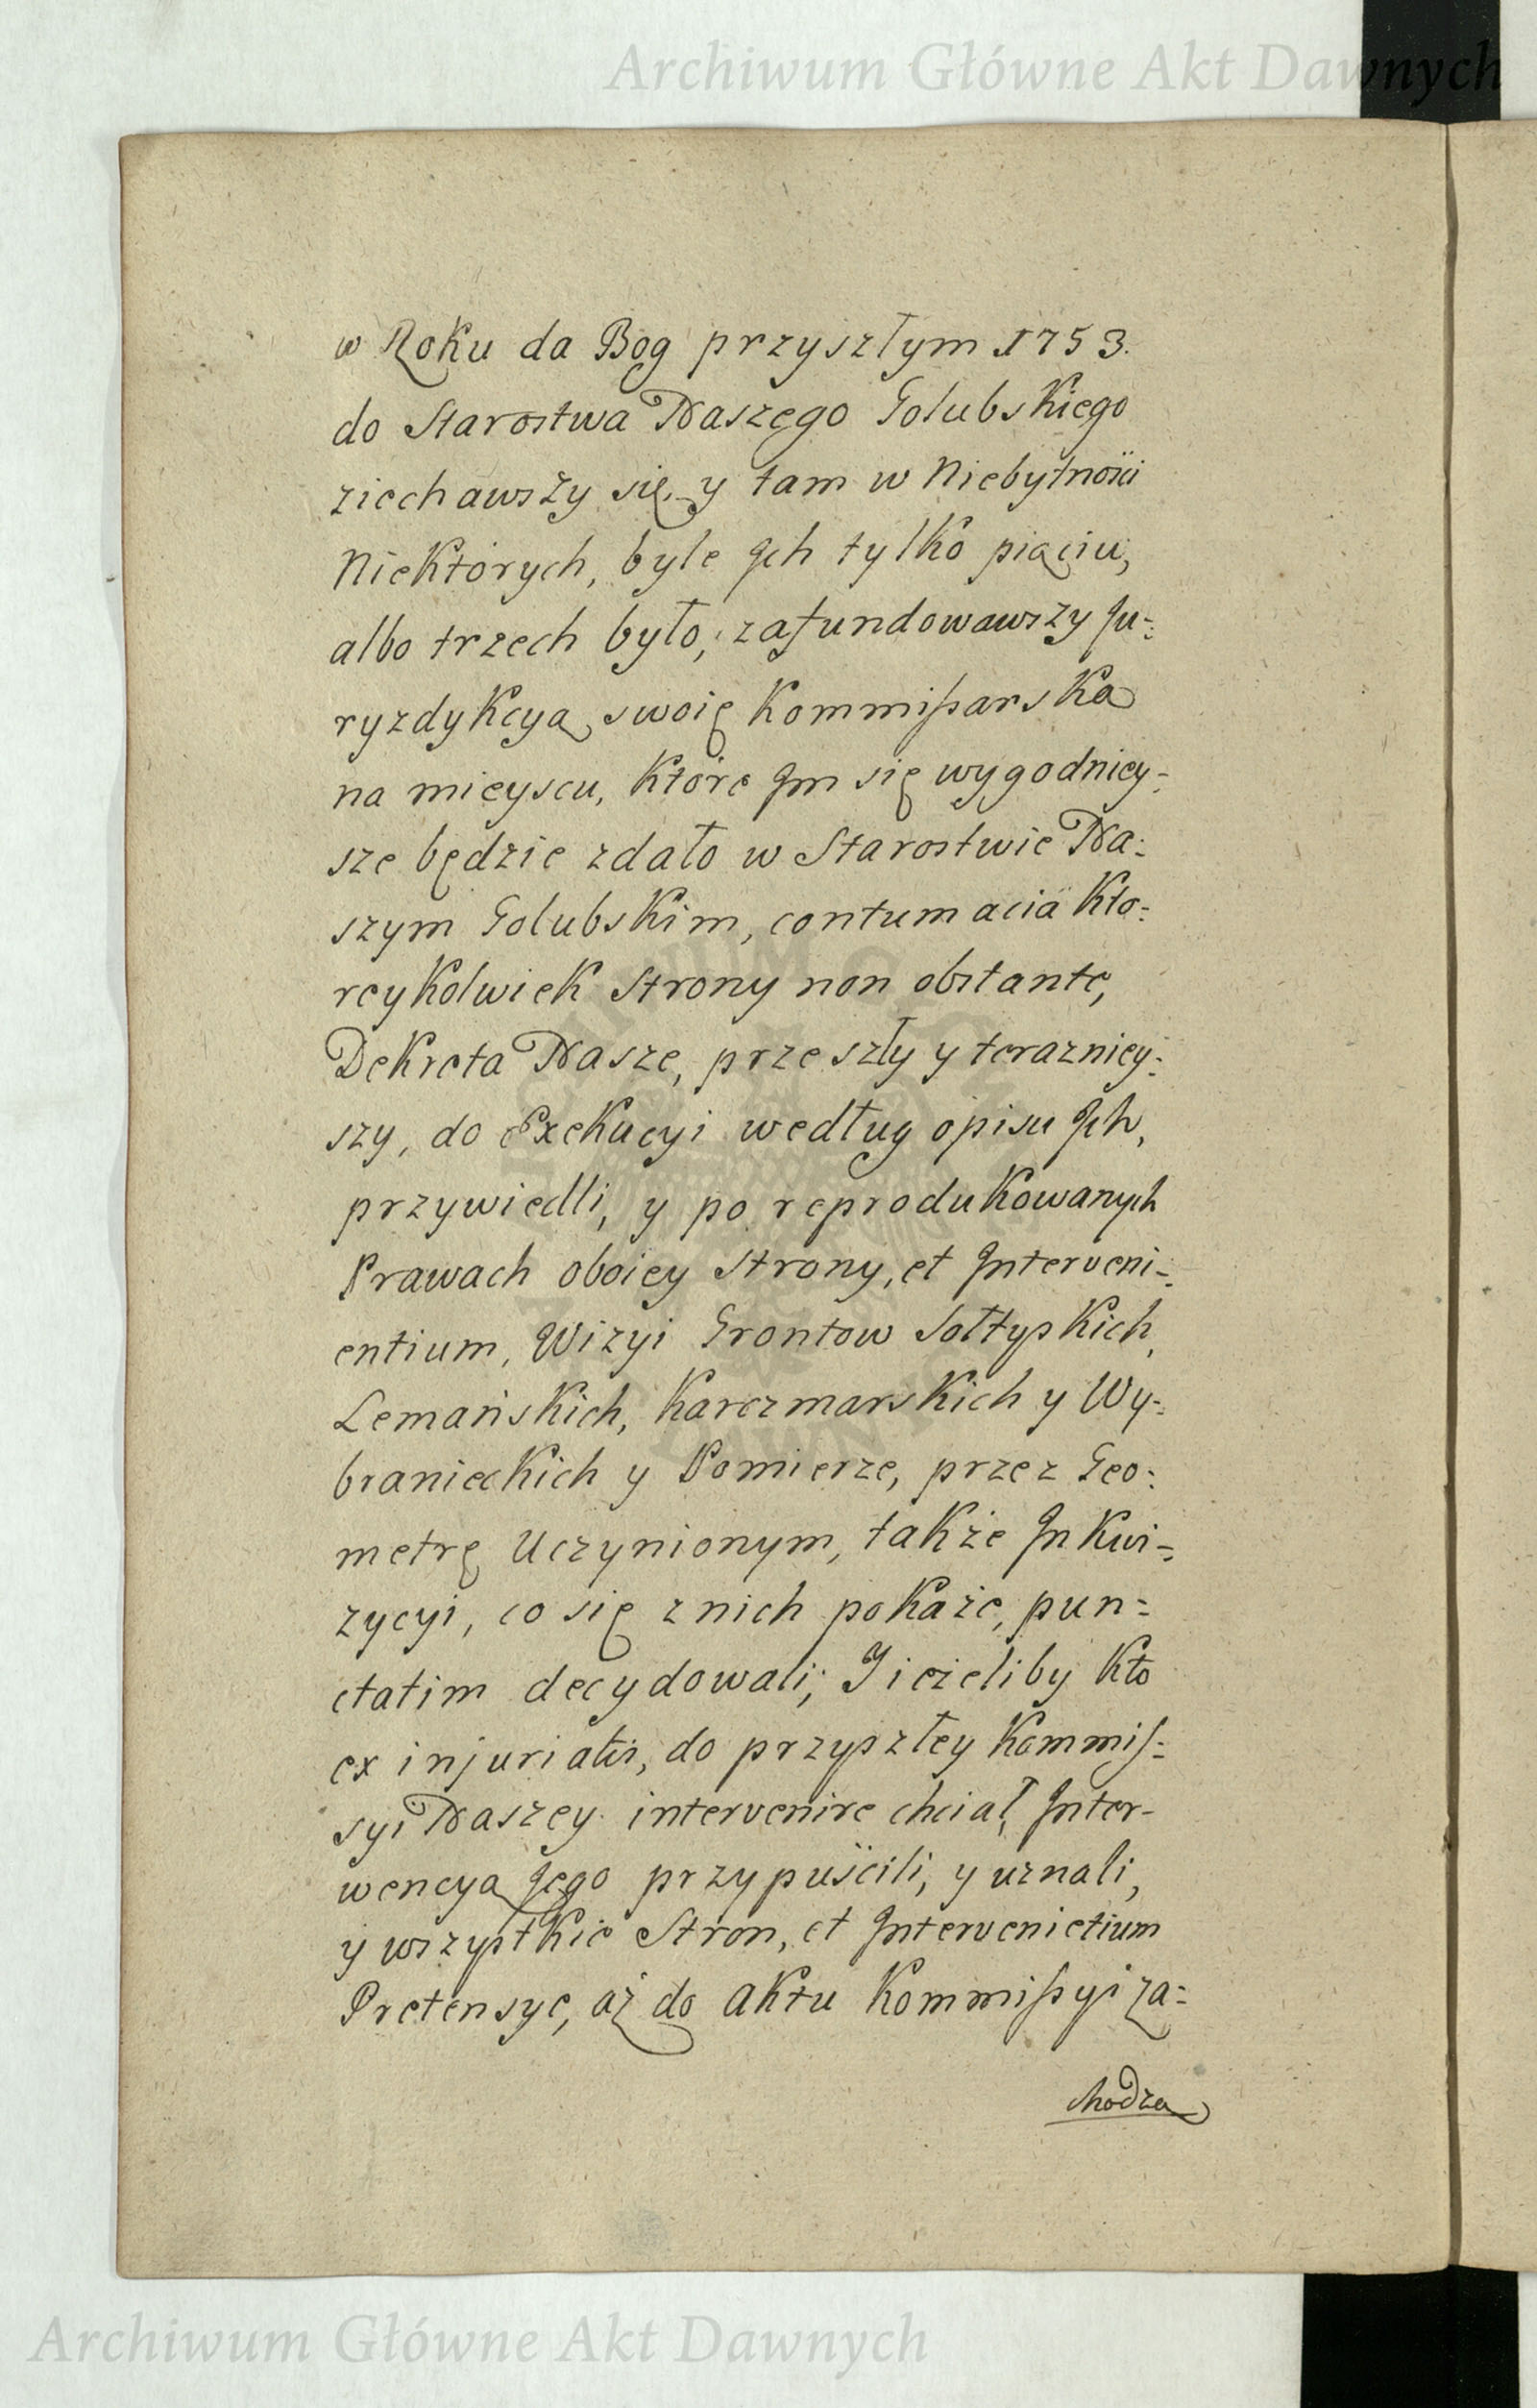 Archiwum Główne Akt Dawnych
w Roku da Bog przyszłym 1753.
do Starostwa Naszego Golubskiego
ziechawszy się y tam w Niebytności
Niektórych, byle Jch tylko pięciu,
albo trzech było, zafundowawszy Ju-:
ryzdykcyą swoię Kommißarską
na mieyscu, które Jm się wygodniey-:
sze będzie zdało w Starostwie Na:
szym Golubskim, contumacia kto-:
reykolwiek Strony non obstante,
Dekreta Nasze, przeszły y terazniey-:
szy, do Exekucyi według opisu Jch,
przywiedli, y po reprodukowanych
Prawach oboiey Strony, et Interveni-:
entium, Wizyi Grontow Sołtyskich,
Lemańskich, Karczmarskich y Wy-:
branieckich y Pomierze, przez Geo-:
metrę Uczynionym, także Inkwi-:
zycyi, co się z nich pokaże, pun-:
ctatim decydowali; Jieżeliby kto
ex injuriatis, do przyszłey Kommis-:
syi Naszey intervenire chciał, Inter-
wencyą Jego przypuścili, y uznali,
y wszystkie Stron, et Intervenietium
Pretensye, aż do aktu Kommißyi za-:
chodzą
Archiwum Główne Akt Dawnych